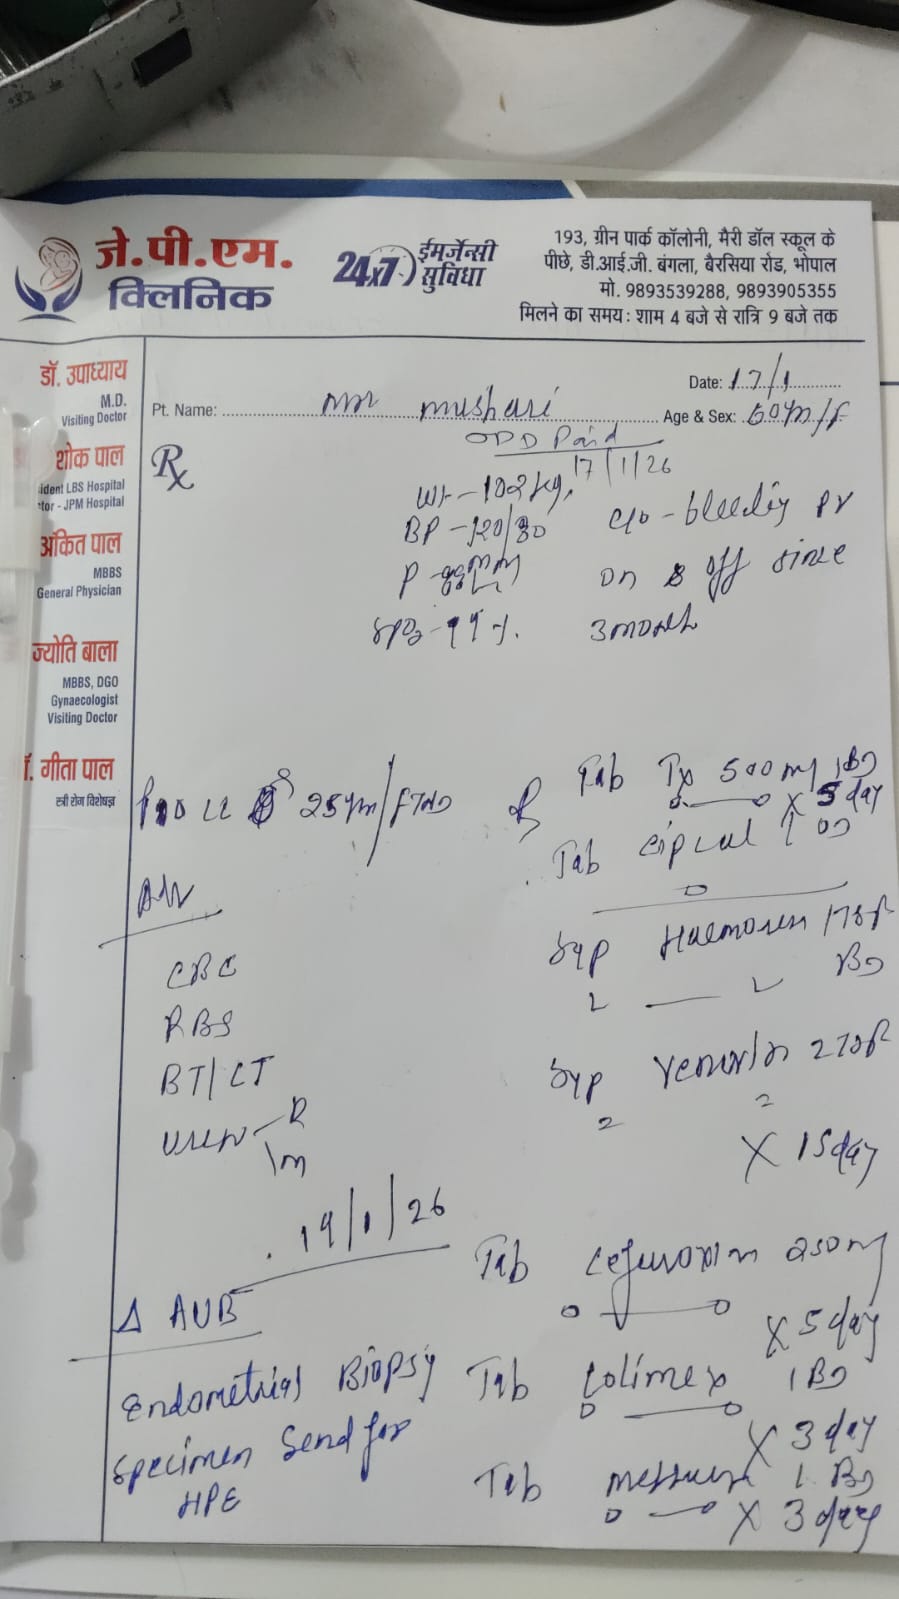 जे.पी.एम.
क्लिनिक
24x7 ईमर्जेन्सी सुविधा
193, ग्रीन पार्क कॉलोनी, मैरी डॉल स्कूल के
पीछे, डी.आई.जी. बंगला, बैरसिया रोड, भोपाल
मो. 9893539288, 9893905355
मिलने का समय: शाम 4 बजे से रात्रि 9 बजे तक
डॉ. उपाध्याय
M.D.
Visiting Doctor
शोक पाल
ident LBS Hospital
tor - JPM Hospital
अंकित पाल
MBBS
General Physician
ज्योति बाला
MBBS, DGO
Gynaecologist
Visiting Doctor
. गीता पाल
स्त्री रोग विशेषज्ञ
Date: 17/1
Pt. Name: mushari Age & Sex: /F
OPD Paid
Rx
17/1/26
Wt - 102 kg,
BP - 120/80
P -
SpO2 - 99 %.
c/o - bleeding PV
on & off since
3 month
25
Tab Tx 500 mg 1 BD
x 5 day
Tab cipcal 1 OD
Adv
CBC
RBS
BT/CT
Urine - R
\ m
Syp 1 TSF
BD
Syp 2 TSF
X 15 day
19/1/26
Δ AUB
Endometrial Biopsy
Specimen Send for
HPE
Tab cefuroxim 250 mg
X 5 day
Tab Colimex 1 BD
X 3 day
Tab 1 BD
X 3 day